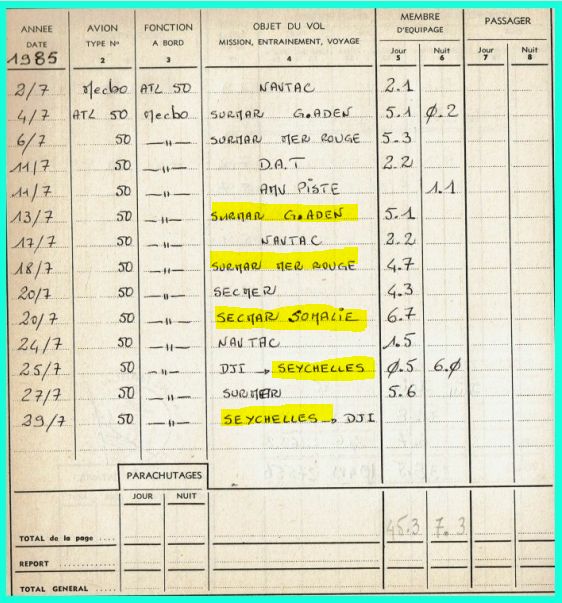 ANNEE AVION FONCTION OBJET DU VOL MEMBRE D'EQUIPAGE PASSAGER
DATE TYPE N° A BORD MISSION, ENTRAINEMENT, VOYAGE Jour Nuit Jour Nuit
1985 2 3 4 5 6 7 8
2/7 Mecbo ATL 50 NAVTAC 2.1
4/7 ATL 50 Mecbo SURMAR G.ADEN 5.1 Ø.2
6/7 50 —"— SURMAR MER ROUGE 5.3
11/7 50 —"— D.A.T 2.2
11/7 50 —"— AMV PISTE 1.1
13/7 50 —"— SURMAR G.ADEN 5.1
17/7 50 —"— NAVTAC 2.2
18/7 50 —"— SURMAR MER ROUGE 4.7
20/7 50 —"— SECMER 4.3
20/7 50 —"— SECMAR SOMALIE 6.7
24/7 50 —"— NAVTAC 1.5
25/7 50 —"— DJI → SEYCHELLES Ø.5 6.Ø
27/7 50 —"— SURMER 5.6
29/7 50 —"— SEYCHELLES → DJI
PARACHUTAGES
JOUR NUIT
TOTAL de la page .... 45.3 7.3
REPORT ............
TOTAL GENERAL ........